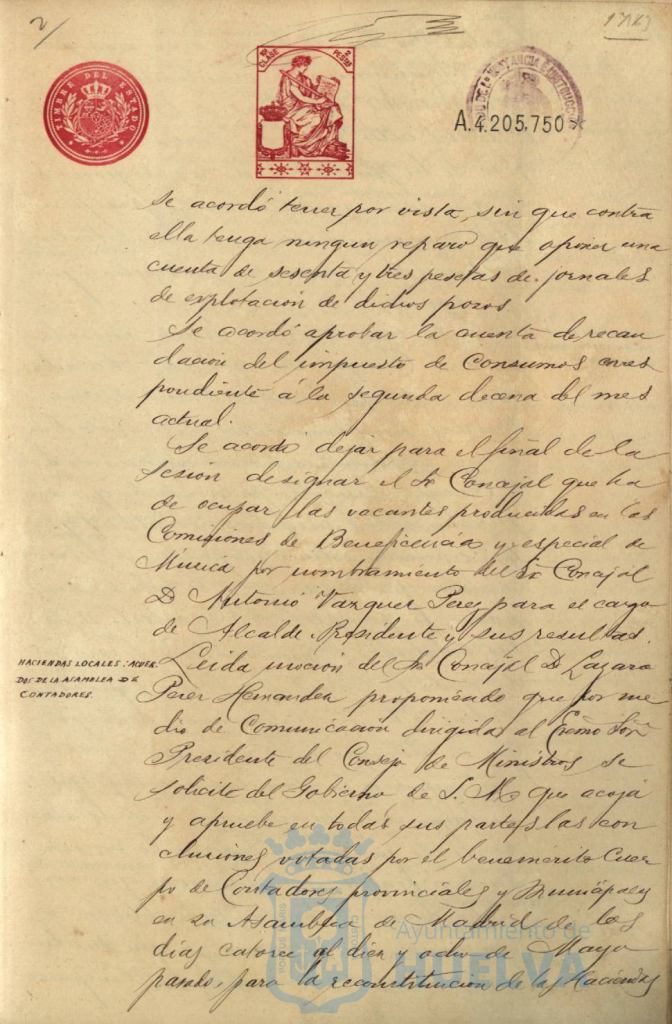 2
TIMBRE DEL ESTADO
10ª CLASE 2 PESETAS
A.4.205.750
se acordó tener por vista, sin que contra
ella tenga ningun reparo que oponer una
cuenta de sesenta y tres pesetas de jornales
de explotación de dichos pozos
Se acordó aprobar la cuenta de recau
dacion del impuesto de Consumos corres
pondiente á la segunda decena del mes
actual.
Se acordó dejar para el final de la
sesión designar el Sr Concejal que ha
de ocupar las vacantes producidas en las
Comisiones de Beneficencia y especial de
Música por nombramiento del Sr Concejal
D Antonio Vazquez Perez para el cargo
de Alcalde Presidente y sus resultas.
HACIENDAS LOCALES: ACUER
DOS DE LA ASAMBLEA DE
CONTADORES.
Leida moción del Sr Concejal D Lazaro
Perez Hernandez proponiendo que por me
dio de Comunicacion dirigida al Excmo Señor
Presidente del Consejo de Ministros se
solicite del Gobierno de S. M. que acoja
y apruebe en todas sus partes las con
clusiones votadas por el benemérito Cuer
po de Contadores provinciales y Municipales
en su Asamblea de Madrid de los
dias catorce al diez y ocho de Mayo
pasado, para la reconstitucion de las Haciendas
Ayuntamiento de
HUELVA